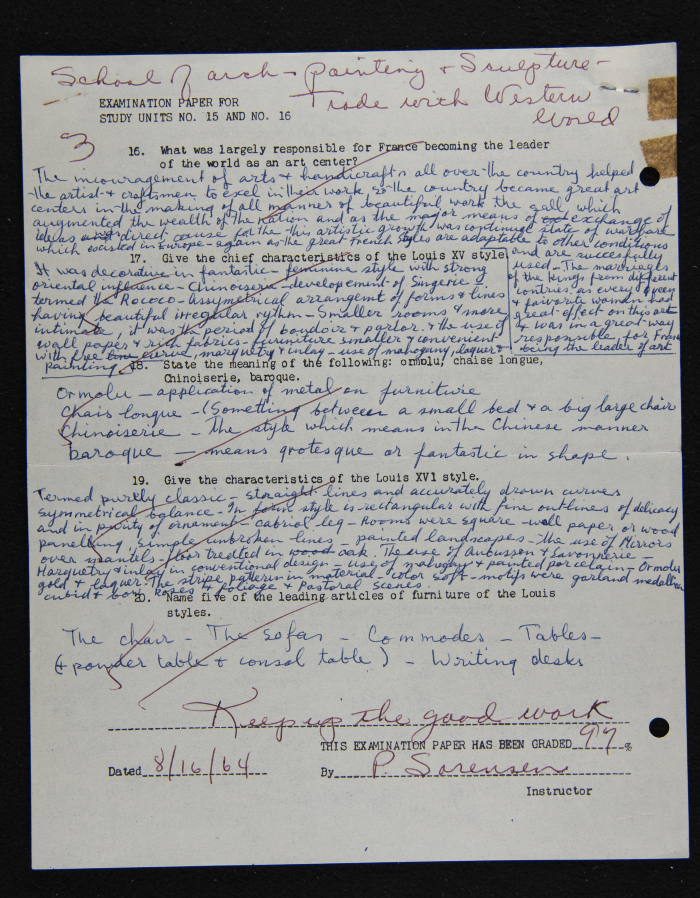 School of arch - painting & Sculpture -
Trade with Western
World
EXAMINATION PAPER FOR
STUDY UNITS NO. 15 AND NO. 16
3
16. What was largely responsible for France becoming the leader
of the world as an art center?
The incouragement of arts & handicrafts all over the country helped
the artist & craftsmen to exel in their work, so the country became great art
centers in the making of all manner of beautiful work the gall which
augmented the wealth of the nation and as the major means of exchange of
ideas and direct cause for the this artistic growth was continuige state of warfare
which existed in Europe - again as the great French styles are adaptable to other conditions
and are succesfully
used - The marriages
of the kings from different
contries as every queen
& faivorte woman had
great effect on this art
& was in a great way
responsible for France
being the leader of art
17. Give the chief characteristics of the Louis XV style
It was decorative in fantastic - feminine style with strong
oriental infleunce - Chinoiserie - developement of Singerie &
termed the Rococo - Assymetrical arrangemt of forms & lines
having beautiful irregular rythm - Smaller rooms & more
intimate, it was the period of boudoir & parlor. & the use of
wall paper & rich fabrics - furniture smaller & convenient
with free curve, marquetry & inlay - use of mahogany, laquer &
painting
18. State the meaning of the following: ormolu, chaise longue,
Chinoiserie, baroque.
Ormolu - application of metal on furniture
Chais longue - (Something between a small bed & a big large chair
Chinoiserie - The style which means in the Chinese manner
baroque - means grotesque or fantastic in shape.
19. Give the characteristics of the Louis XV1 style.
Termed purely classic - straight lines and accurately drawn curves
symmetrical balance - In form style is rectangular with fine outlines of delicacy
and in purity of ornament - Cabriol leg - Rooms were square - wall paper or wood
panelling, simple unbroken lines - painted landscapes - the use of Mirrors
over mantels - floor treated in wood oak. The use of Aubusson & Savonnerie
Marquetry & inlay in conventional design - use of mahogny & painted porcelain - Ormolu
gold & laquer. The stripe pattern in material - color soft - motifs were garland medallion
cubid & bow, Roses & foliage & Pastoral Scenes.
20. Name five of the leading articles of furniture of the Louis
styles.
The chair - The sofas - Commodes - Tables -
(& powder table & consol table) - Writing desks
Keep up the good work
THIS EXAMINATION PAPER HAS BEEN GRADED 97 %
Dated 8/16/64 By P. Sorensen
Instructor